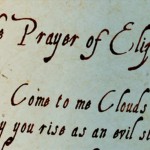 e Prayer of Eliz
Come to me Clouds
y you rise as an evil st